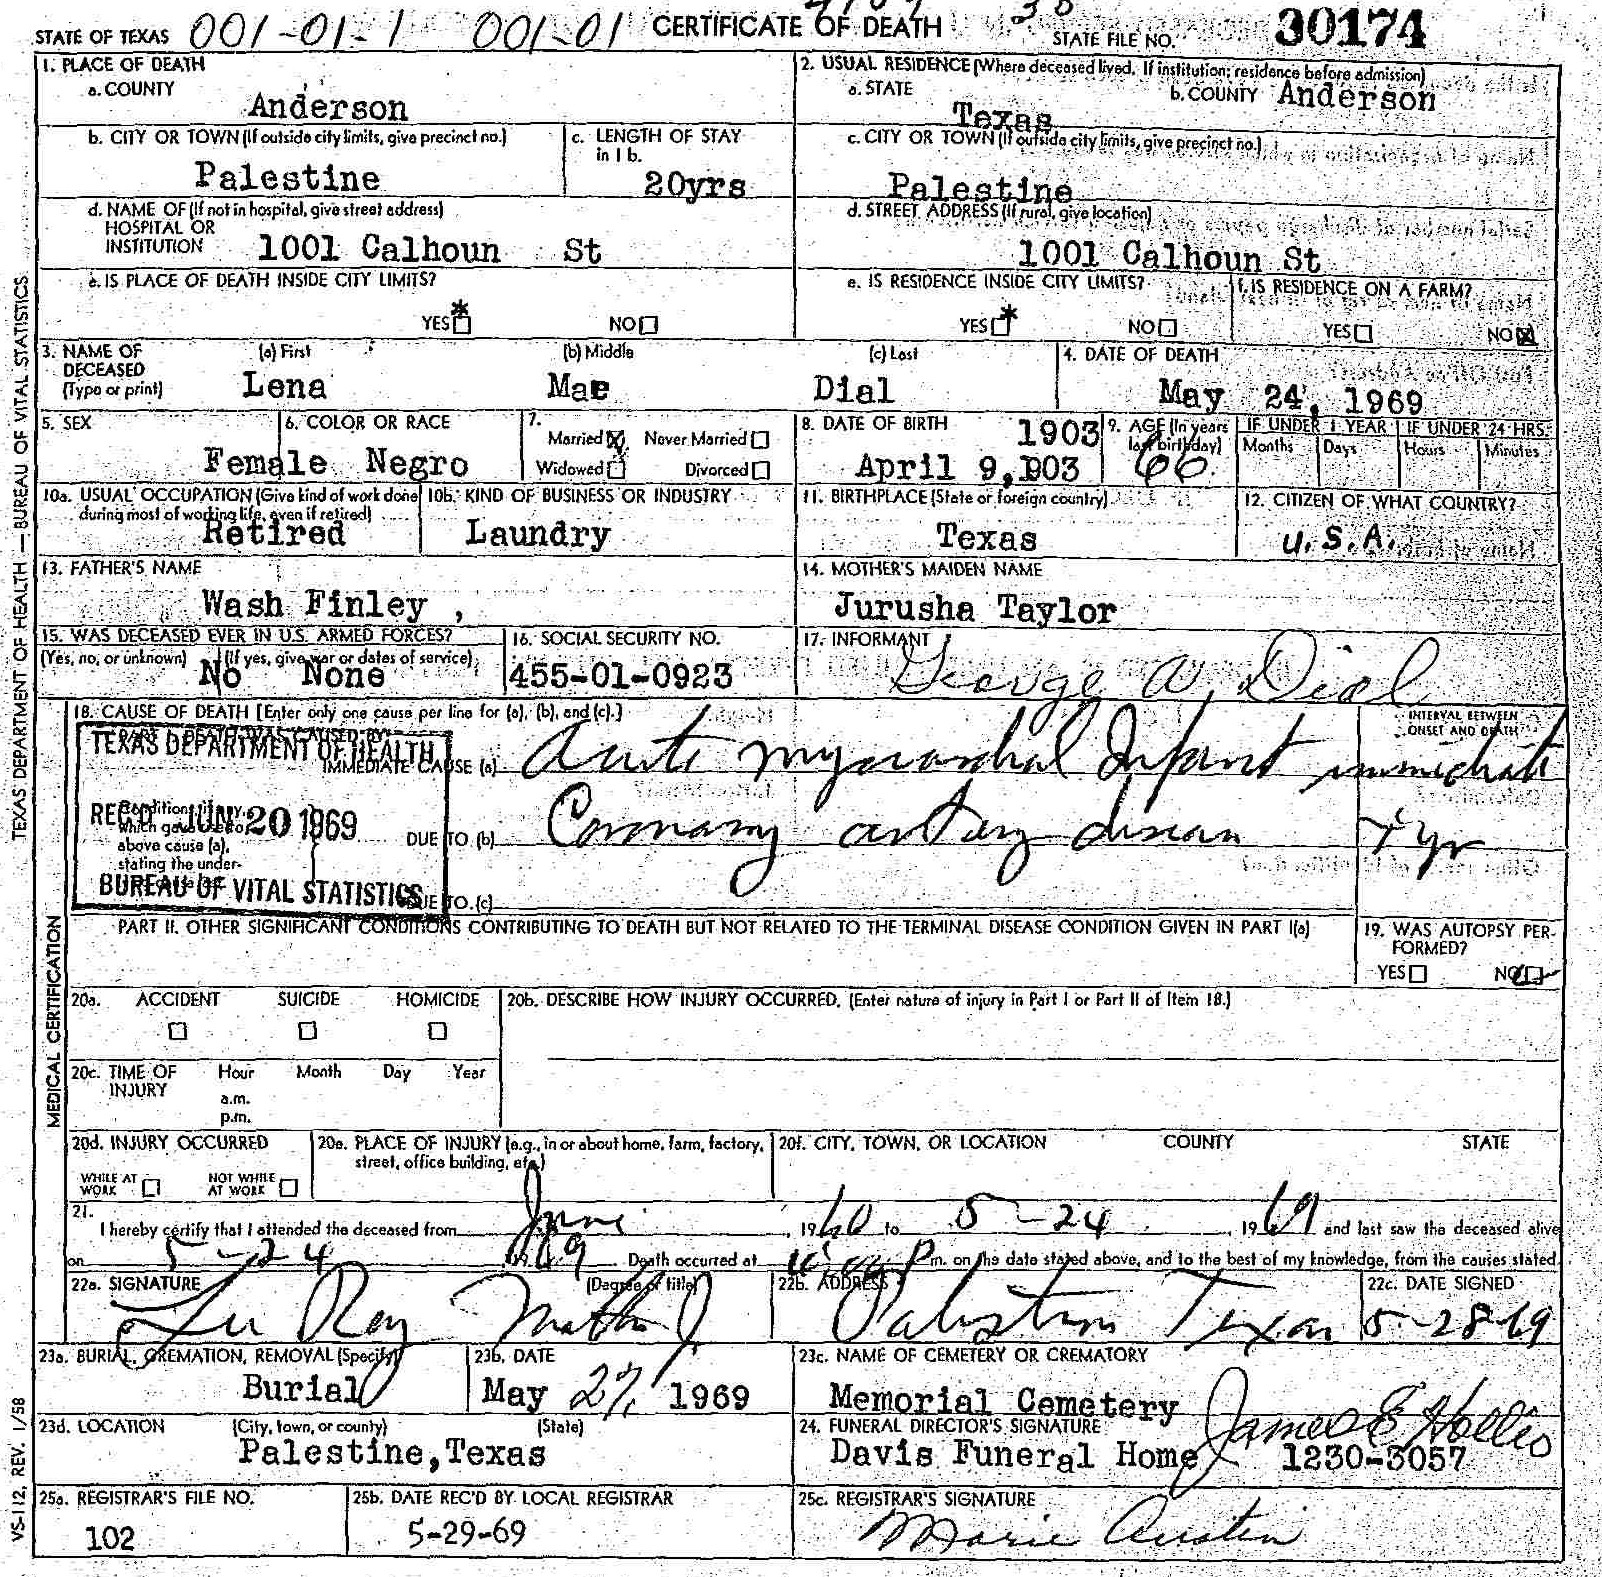 STATE OF TEXAS 001-01-1 001-01 CERTIFICATE OF DEATH STATE FILE NO. 30174
1. PLACE OF DEATH
a. COUNTY
Anderson
2. USUAL RESIDENCE (Where deceased lived. If institution: residence before admission)
a. STATE
Texas
b. COUNTY Anderson
b. CITY OR TOWN (If outside city limits, give precinct no.)
Palestine
c. LENGTH OF STAY
in 1 b.
20yrs
c. CITY OR TOWN (If outside city limits, give precinct no.)
Palestine
d. NAME OF (If not in hospital, give street address)
HOSPITAL OR
INSTITUTION 1001 Calhoun St
d. STREET ADDRESS (If rural, give location)
1001 Calhoun St
e. IS PLACE OF DEATH INSIDE CITY LIMITS?
YES NO
e. IS RESIDENCE INSIDE CITY LIMITS?
YES NO
f. IS RESIDENCE ON A FARM?
YES NO
3. NAME OF
DECEASED
(Type or print)
(a) First
Lena
(b) Middle
Mae
(c) Last
Dial
4. DATE OF DEATH
May 24, 1969
5. SEX
Female
6. COLOR OR RACE
Negro
7.
Married Never Married
Widowed Divorced
8. DATE OF BIRTH 1903
April 9,
9. AGE (In years
last birthday)
66
IF UNDER 1 YEAR
Months Days
IF UNDER 24 HRS.
Hours Minutes
10a. USUAL OCCUPATION (Give kind of work done
during most of working life, even if retired)
Retired
10b. KIND OF BUSINESS OR INDUSTRY
Laundry
11. BIRTHPLACE (State or foreign country)
Texas
12. CITIZEN OF WHAT COUNTRY?
U.S.A.
13. FATHER'S NAME
Wash Finley ,
14. MOTHER'S MAIDEN NAME
Jurusha Taylor
15. WAS DECEASED EVER IN U.S. ARMED FORCES?
(Yes, no, or unknown) (If yes, give war or dates of service)
No None
16. SOCIAL SECURITY NO.
455-01-0923
17. INFORMANT
George W. Dial
18. CAUSE OF DEATH [Enter only one cause per line for (a), (b), and (c).]
PART I. DEATH WAS CAUSED BY:
IMMEDIATE CAUSE (a) Acute myocardial Infarct
INTERVAL BETWEEN
ONSET AND DEATH
immediate
TEXAS DEPARTMENT OF HEALTH
REC'D JUN 20 1969
BUREAU OF VITAL STATISTICS
Conditions, if any,
which gave rise to
above cause (a),
stating the under-
DUE TO (b) Coronary artery disease
yr
DUE TO (c)
PART II. OTHER SIGNIFICANT CONDITIONS CONTRIBUTING TO DEATH BUT NOT RELATED TO THE TERMINAL DISEASE CONDITION GIVEN IN PART I(a)
19. WAS AUTOPSY PER-
FORMED?
YES NO
20a. ACCIDENT SUICIDE HOMICIDE
20b. DESCRIBE HOW INJURY OCCURRED. (Enter nature of injury in Part I or Part II of Item 18.)
20c. TIME OF
INJURY
Hour Month Day Year
a.m.
p.m.
20d. INJURY OCCURRED
WHILE AT
WORK
NOT WHILE
AT WORK
20e. PLACE OF INJURY (e.g., in or about home, farm, factory,
street, office building, etc.)
20f. CITY, TOWN, OR LOCATION COUNTY STATE
21.
I hereby certify that I attended the deceased from June, 1960 to 5-24, 1969 and last saw the deceased alive
on 5-24 1969. Death occurred at p.m. on the date stated above, and to the best of my knowledge, from the causes stated.
22a. SIGNATURE (Degree or title)
22b. ADDRESS
Palestine Texas
22c. DATE SIGNED
5-28-69
23a. BURIAL, CREMATION, REMOVAL (Specify)
Burial
23b. DATE
May 27, 1969
23c. NAME OF CEMETERY OR CREMATORY
Memorial Cemetery
23d. LOCATION (City, town, or county) (State)
Palestine,Texas
24. FUNERAL DIRECTOR'S SIGNATURE James E Hollis
Davis Funeral Home 1230-3057
25a. REGISTRAR'S FILE NO.
102
25b. DATE REC'D BY LOCAL REGISTRAR
5-29-69
25c. REGISTRAR'S SIGNATURE
Marie Austin
TEXAS DEPARTMENT OF HEALTH — BUREAU OF VITAL STATISTICS
MEDICAL CERTIFICATION
VS-112, REV. 1/58